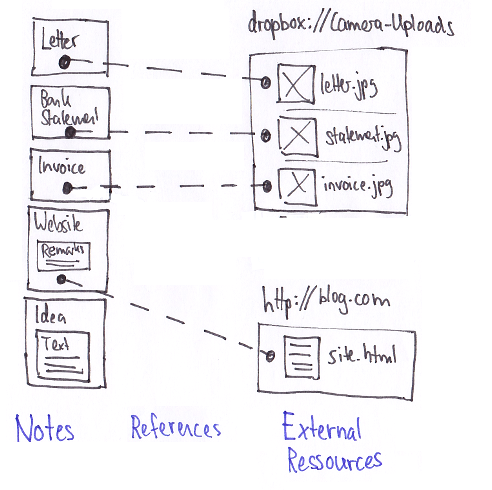 Letter
Bank
Statement
Invoice
Website
Remarks
Idea
Text
dropbox://Camera-Uploads
letter.jpg
statement.jpg
invoice.jpg
http://blog.com
site.html
Notes
References
External
Ressources